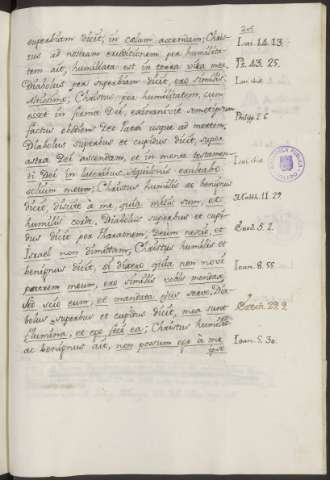 205
superbiam dicit, in cælum ascendam; Chris- Isai. 14. 13.
tus ad nostram eruditionem per humilita-
tem ait, humiliata est in terra vita mea. Ps. 43. 25.
Diabolus per superbiam dicit, ero similis Isai. ibid.
Altissimo; Christus per humilitatem, cum
esset in forma Dei, exinanivit semetipsum Philipp. 2. 6
factus obediens Deo Patri usque ad mortem,
Diabolus superbus et cupidus dicit, super
astra Dei ascendam, et in monte testamen- Isai. ibid.
ti Dei in lateribus Aquilonis exaltabo
solium meum; Christus humilis et benignus
dicit, discite à me, quia mitis sum, et Matth. 11. 29
humilis corde, Diabolus superbus et cupi-
dus dicit per Pharaonem, Deum nescio, et Exod. 5. 2.
Israel non dimittam; Christus humilis et
benignus dicit, si dixero quia non novi Ioan. 8. 55
patrem meum, ero similis vobis mendax,
sed scio eum, et mandata ejus servo, Dia-
bolus superbus et cupidus dicit, mea sunt Ezech. 29. 9.
flumina, et ego feci ea; Christus humilis
ac benignus ait, non possum ego à me Ioan. 5. 30.
ipso